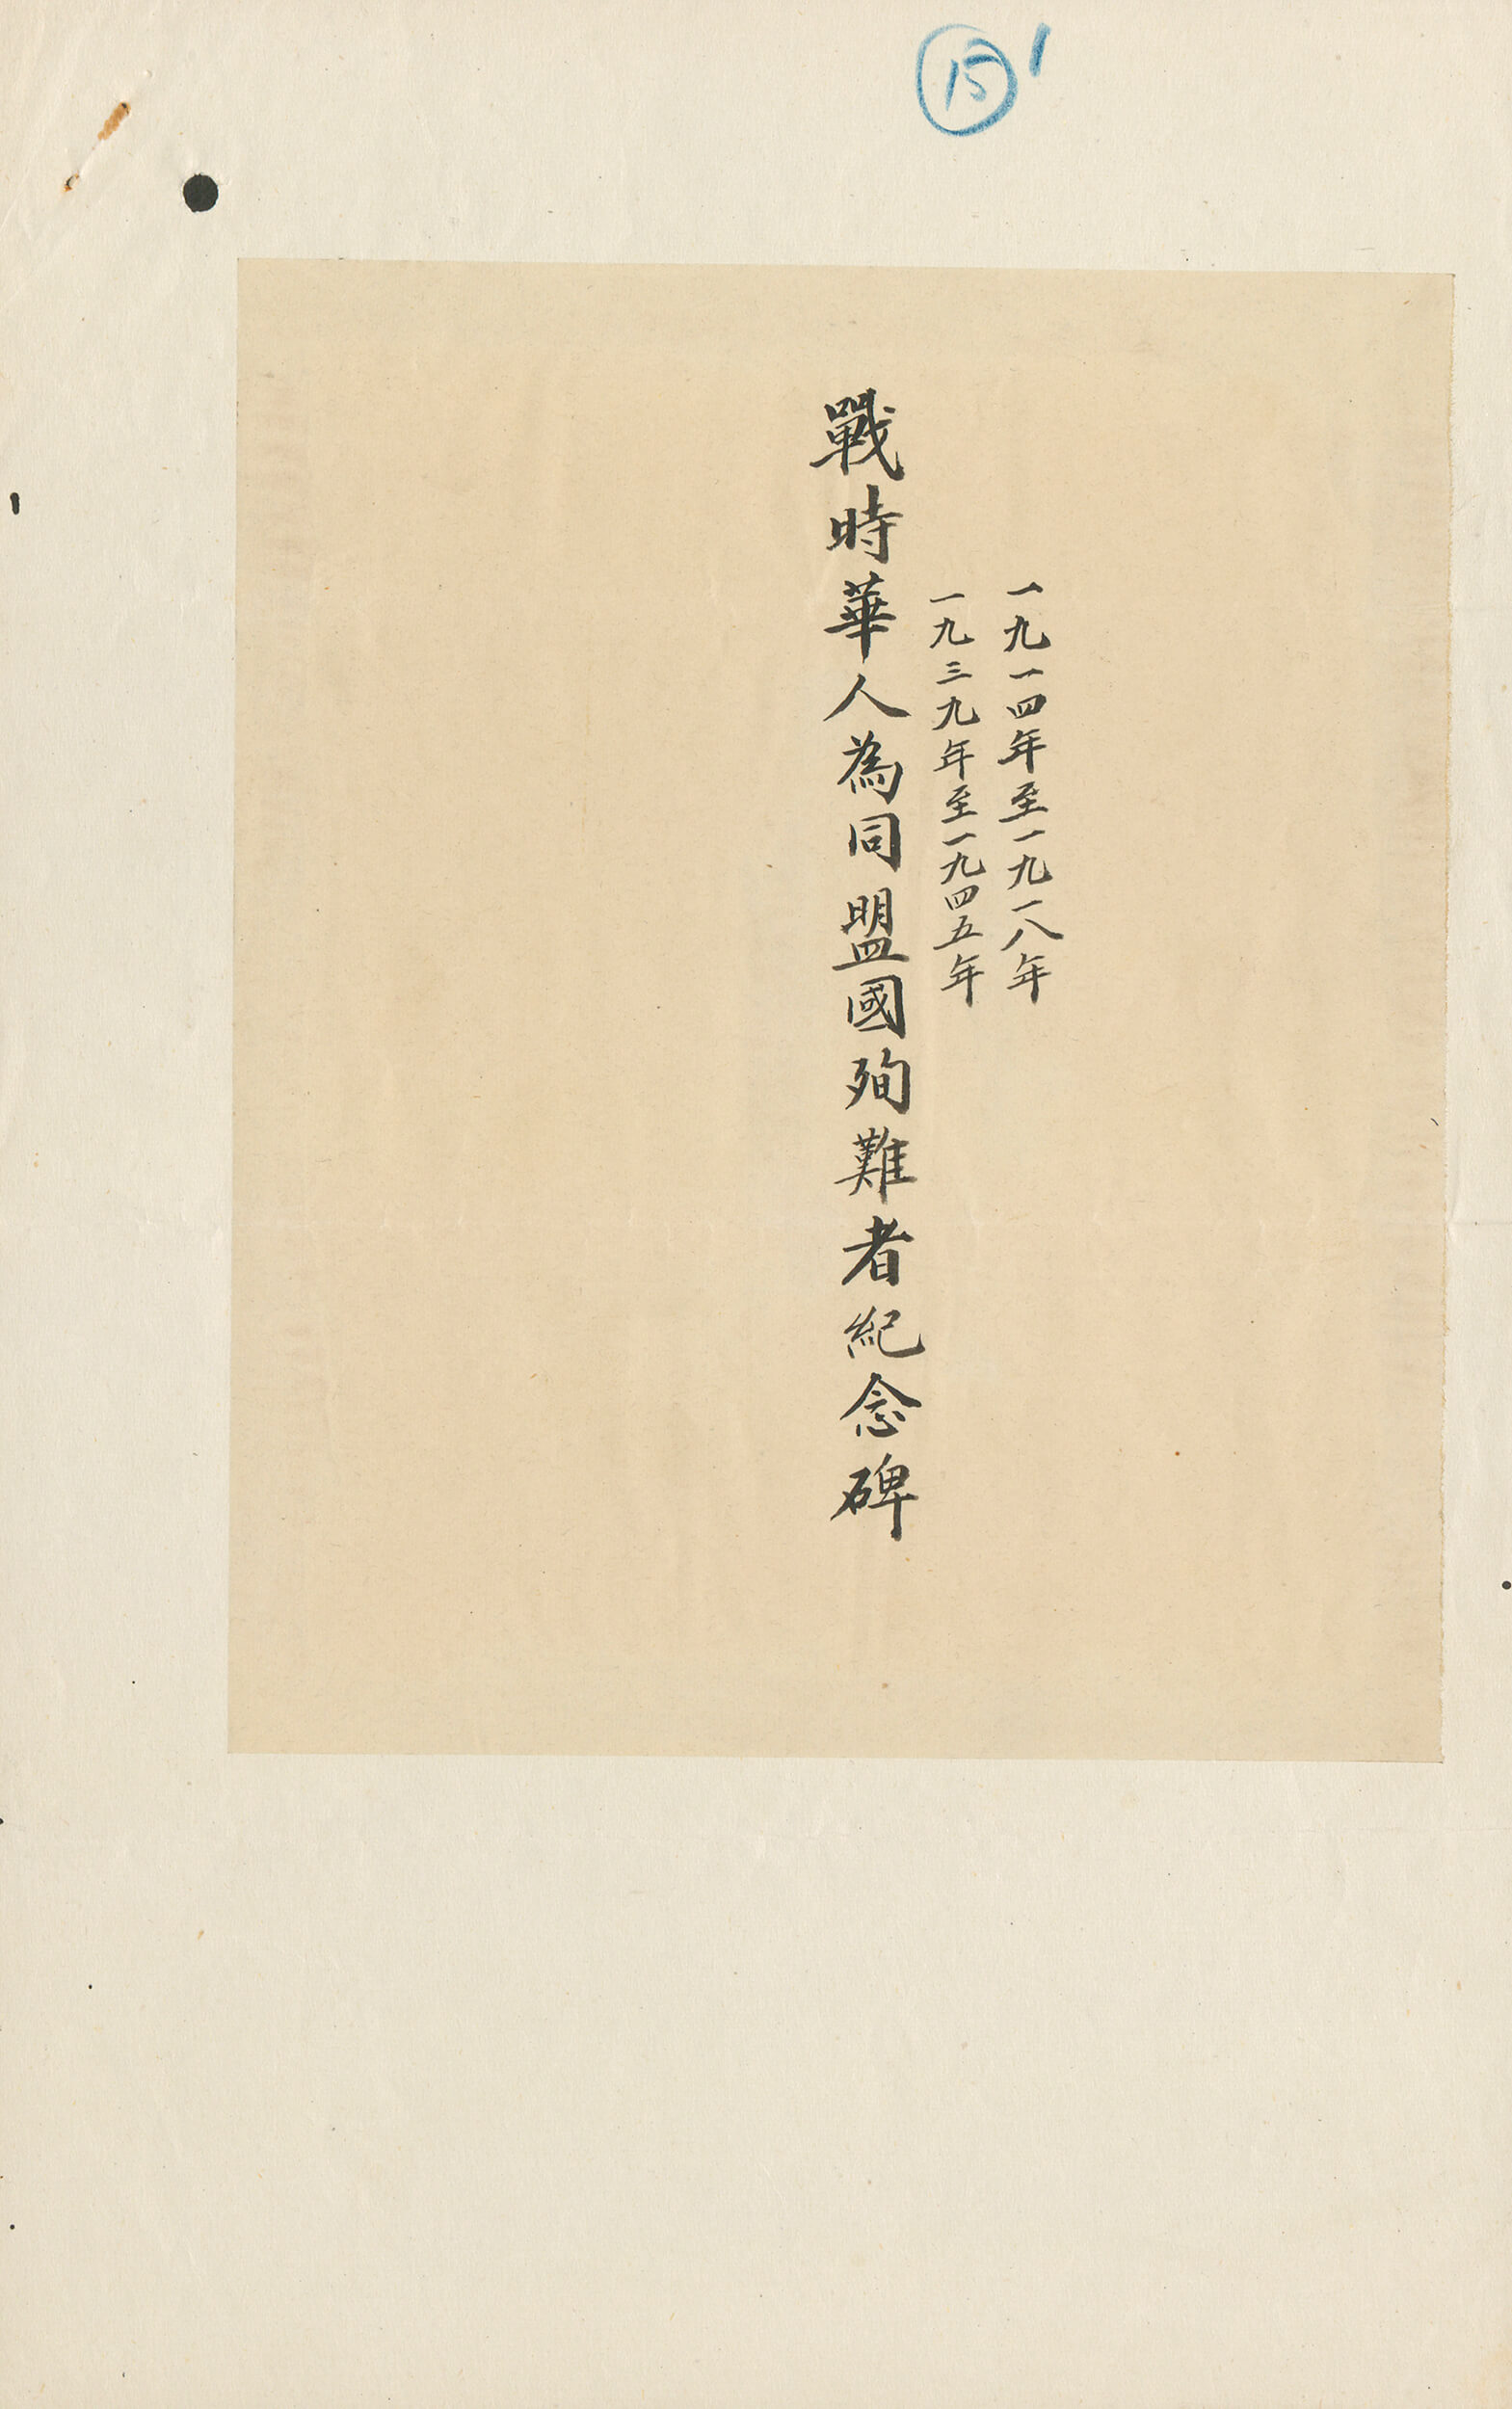 15 1
一九一四年至一九一八年
一九三九年至一九四五年
戰時華人為同盟國殉難者紀念碑